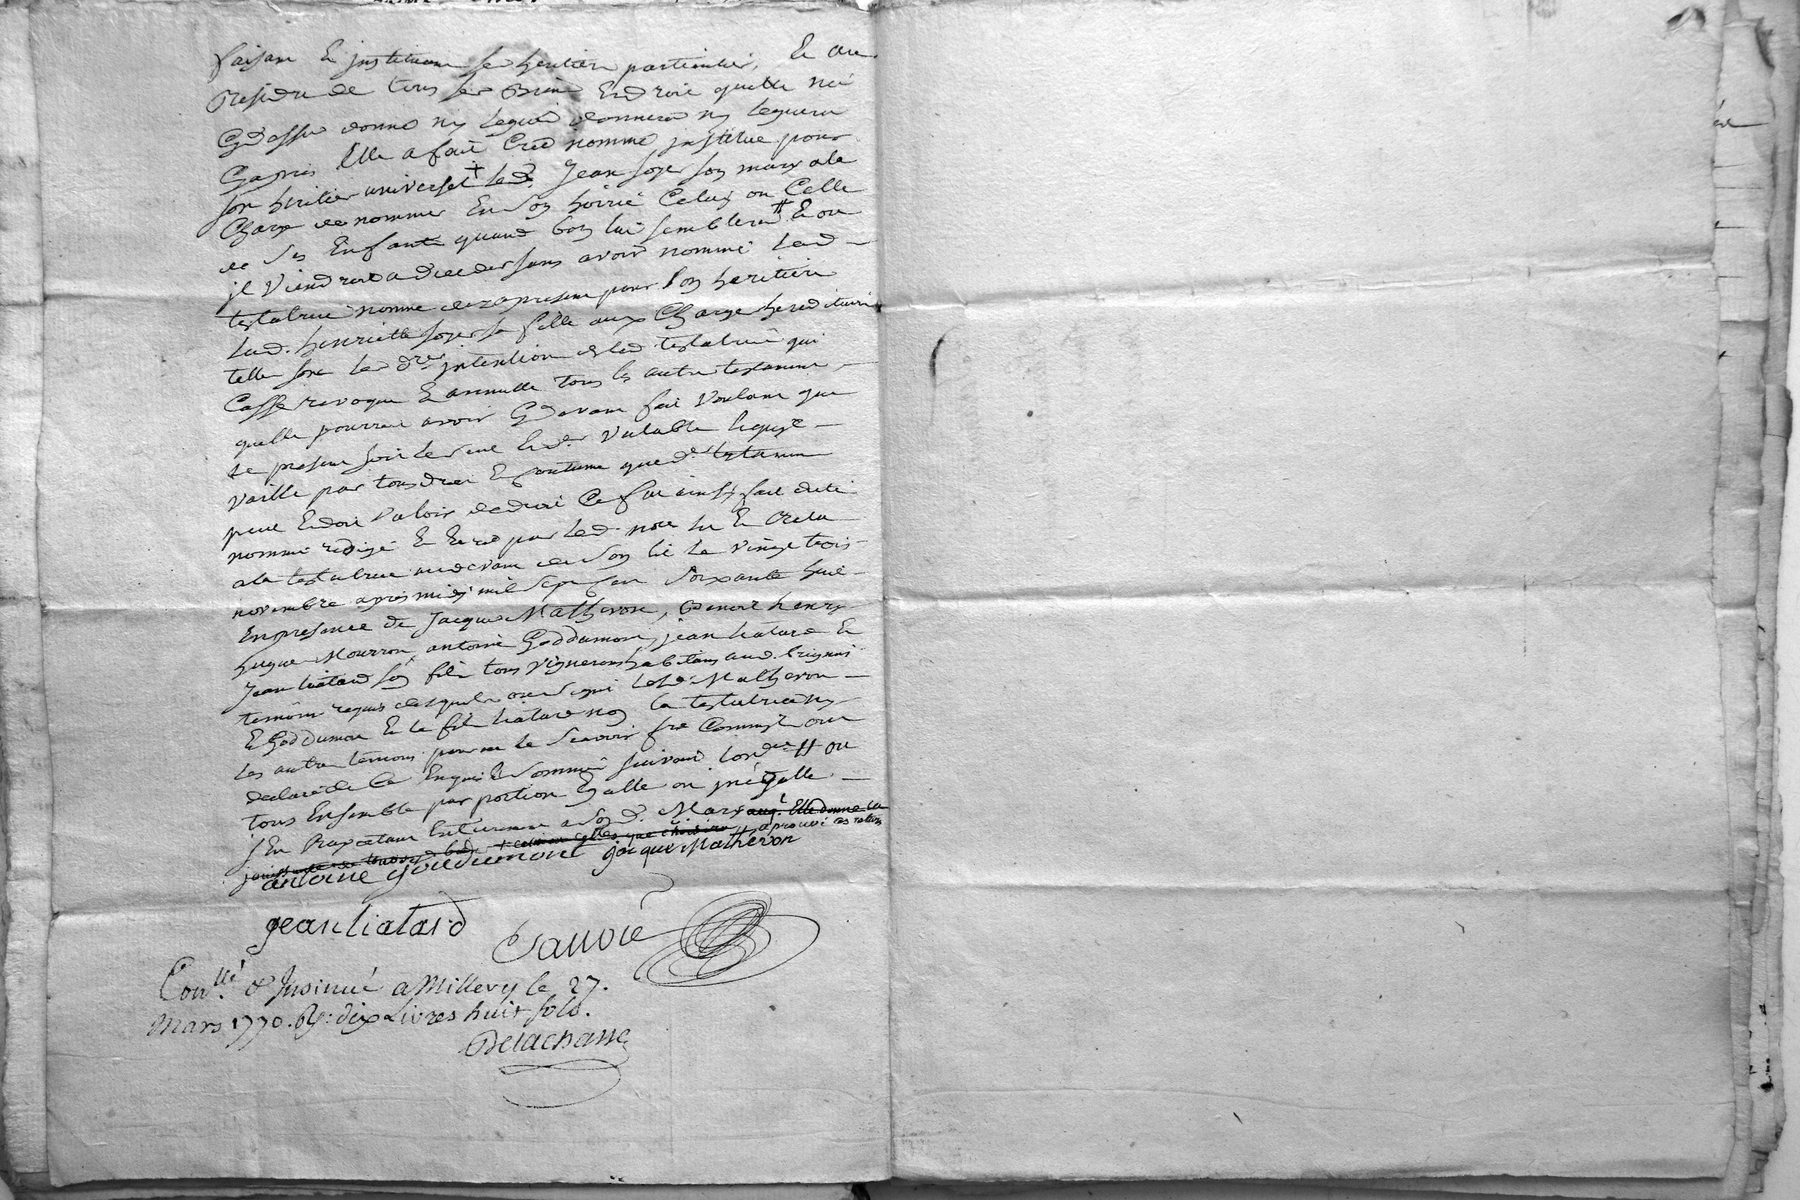 faisant & instituant ses heritiers particuliers, Et au
Residu de tous ses Biens Endroit quelle n'a
Cy dessus donné ny legué donnera ny leguera
Cy apres Elle a fait Creé nommé institue pour
son heritier universel + led. Jean soyer son mary ala
Charge de nommer En son hoirie Celuy ou Celle
de ses Enfants quand bon lui semblera # Et ou
il Viendroit a deceder sans avoir nommé lad
testatrice nomme dez apresent pour son heritiere
lad. henriette soyer sa fille aux Charges hereditaires
telle sont les dres intention de lad testatrice qui
Casse revoque Et annulle tous les autre testament
quelle pourroit avoir Cy devant fait Voulant que
le present soit le seul Et der Valable lequel
vaille par tous droit Et Coutume que de testament
peut Et doit valoir de droit Ce fut ainsy fait dicté
nommé redigé Et Ecrit par led. nore lu Et Relu
ala testatrice au devant de son lit le vingt trois
novembre apres midy mil sept Cent soixante huit
En presence de Jacque Matheron, Benoit henry
hugue Mourron, antoine Goddumont, jean liatard Et
Jean liatard son fils tous vignerons habitans aud. brignais
temoins requis desquels ont signé lesd. Matheron
Et Goddumont Et le fils liatard non la testatrice ny
les autre temoins pour ne le scavoir fre Comme ils ont
declaré de Ce Enquis Et sommés suivant lordce # ou
tous Ensemble par portion Egalle ou inegalle
s'En Raportant Entierement a son d. Mary augt. Elle donne la
jouissance de tous ses biens + comme celles que choisira # aprouvé ces ratures
antoine goudumont jacque Matheron
jean liatard
Sauvoié
Conllé & Insinué a Millery le 27.
Mars 1770. R: dix Livres huit sols.
Delachasse